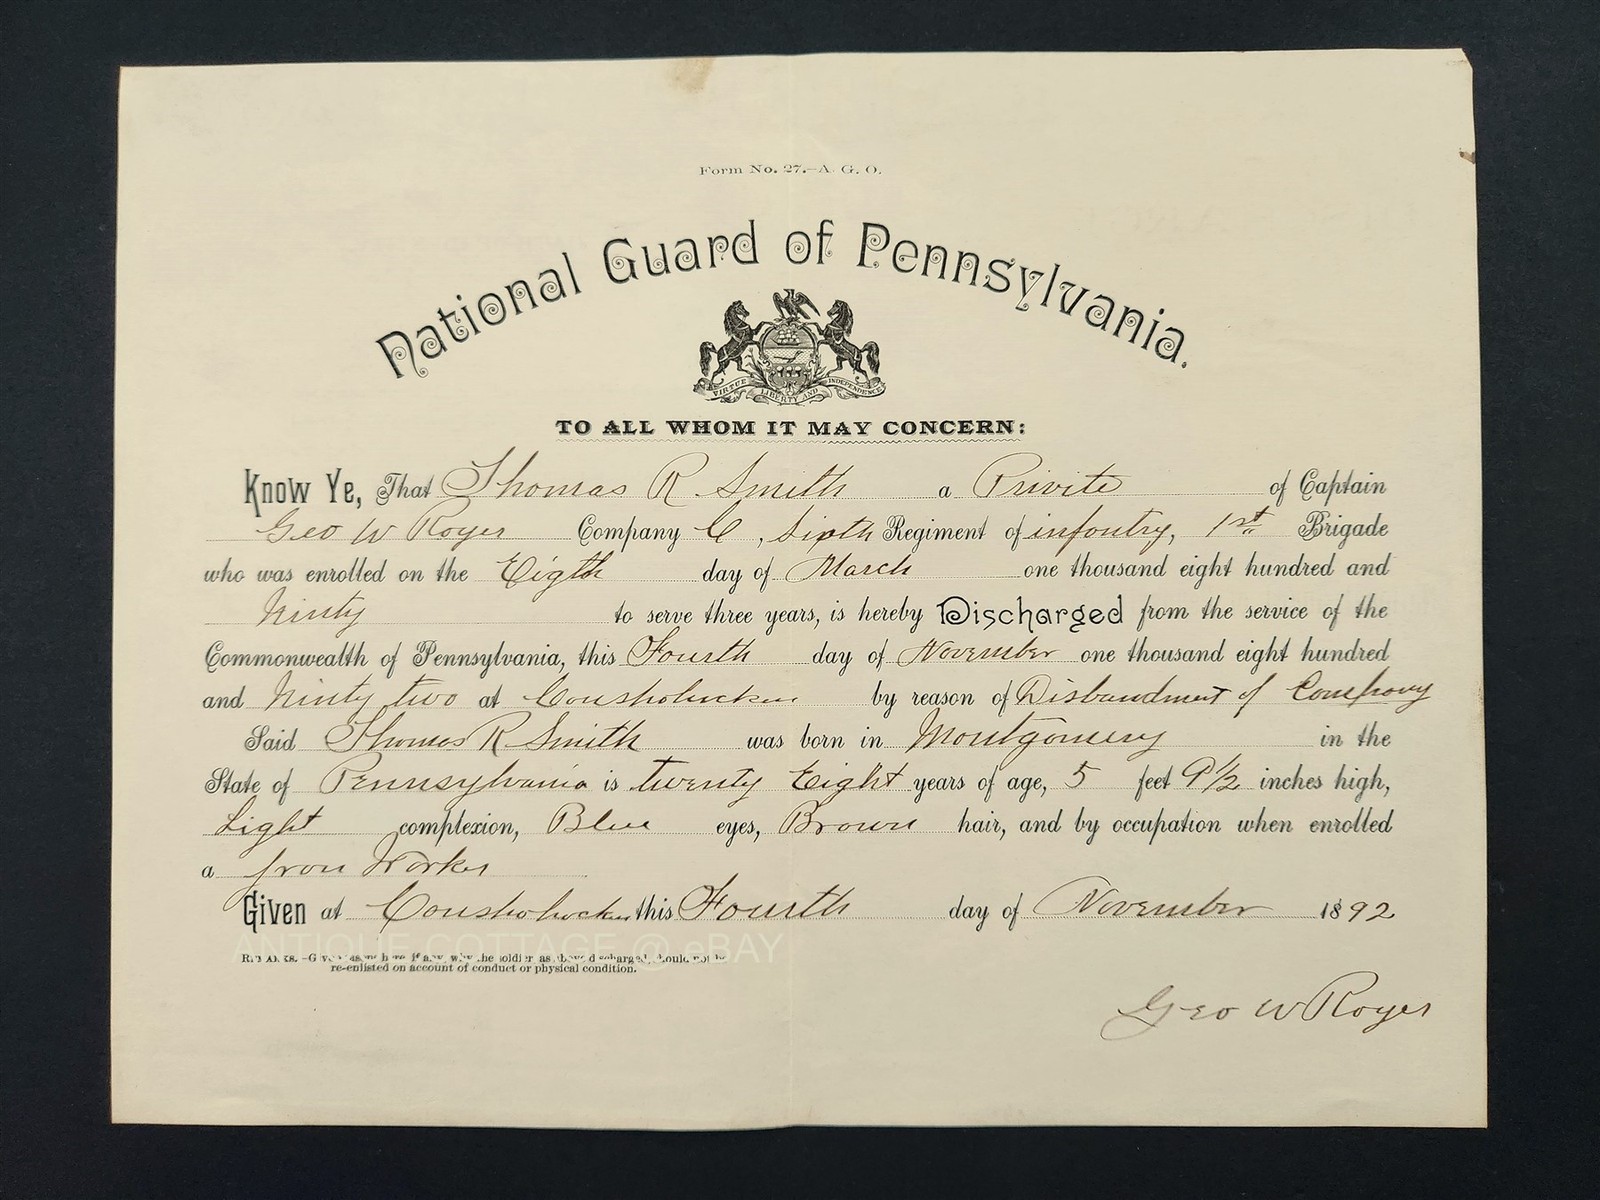 Form No. 27.—A. G. O.
National Guard of Pennsylvania.
VIRTUE LIBERTY AND INDEPENDENCE
TO ALL WHOM IT MAY CONCERN:
Know Ye, That Thomas R Smith a Privite of Captain
Geo W Royer Company C, Sixth Regiment of infantry, 1st Brigade
who was enrolled on the Eigth day of March one thousand eight hundred and
Ninty to serve three years, is hereby Discharged from the service of the
Commonwealth of Pennsylvania, this Fourth day of November one thousand eight hundred
and Ninty two at Conshohocken by reason of Disbandment of Company
Said Thomas R Smith was born in Montgomery in the
State of Pennsylvania is twenty Eight years of age, 5 feet 9 1/2 inches high,
Light complexion, Blue eyes, Brown hair, and by occupation when enrolled
a Iron Worker
Given at Conshohocken this Fourth day of November 1892
ANTIQUE COTTAGE @ eBAY
REMARKS.—Give reasons here, if any, why the soldier, as above discharged, should not be
re-enlisted on account of conduct or physical condition.
Geo W Royer